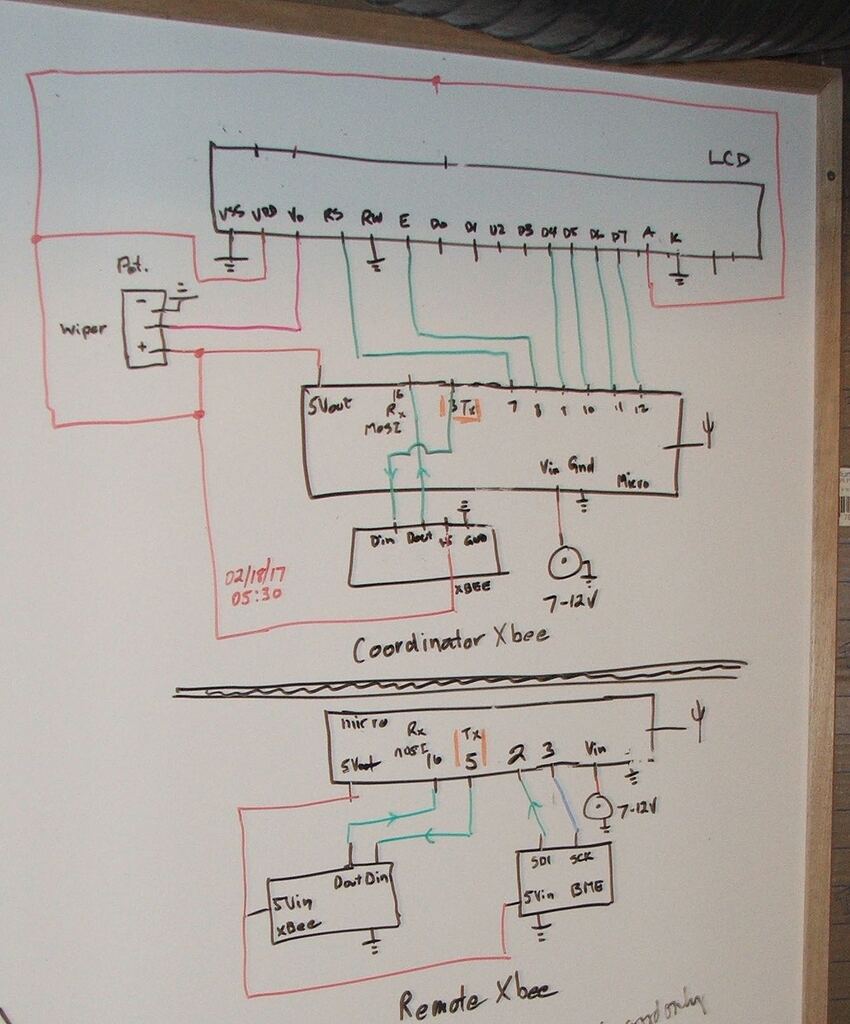 LCD
VSS VDD Vo RS RW E D0 D1 D2 D3 D4 D5 D6 D7 A K
Pot.
-
Wiper
+
5Vout 16 3 Tx 7 8 9 10 11 12
Rx
MOSI
Vin Gnd
Micro
Din Dout +5 GND
XBEE
7-12V
02/18/17
05:30
Coordinator Xbee
micro
Rx Tx
MOSI 16 5 2 3 Vin
5Vout
7-12V
Dout Din
5Vin
XBee
SDI SCK
5Vin BME
Remote Xbee
good only